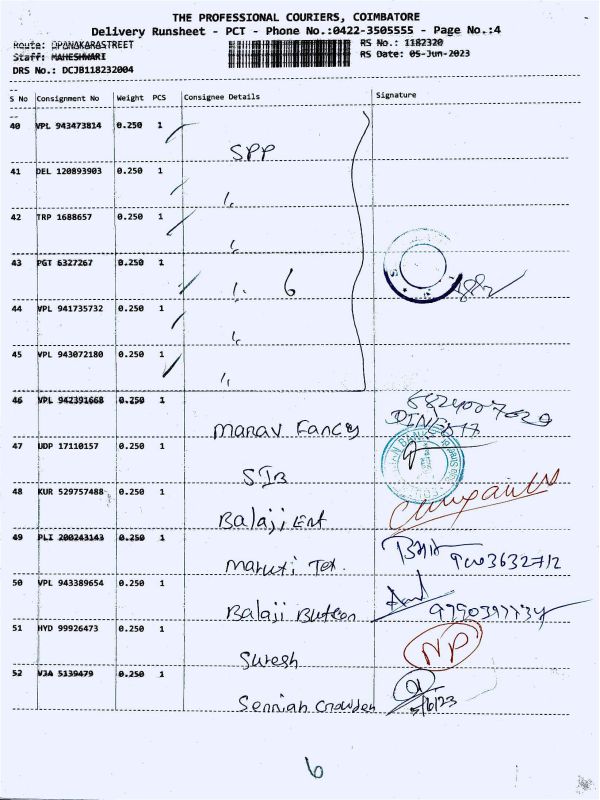 THE PROFESSIONAL COURIERS, COIMBATORE
Delivery Runsheet - PCT - Phone No.:0422-3505555 - Page No.:4
Route: DPANAKARASTREET
RS No.: 1182320
Staff: MAHESHWARI
RS Date: 05-Jun-2023
DRS No.: DCJB118232004
S No Consignment No Weight PCS Consignee Details Signature
40 VPL 943473814 0.250 1
SPP
41 DEL 120893903 0.250 1
42 TRP 1688657 0.250 1
43 PGT 6327267 0.250 1
6
44 VPL 941735732 0.250 1
45 VPL 943072180 0.250 1
46 VPL 942391668 0.250 1
Manav Fancy
47 UDP 17110157 0.250 1
SIB
48 KUR 529757488 0.250 1
Balaji Ent
49 PLI 200243143 0.250 1
Maruti Tex.
50 VPL 943389654 0.250 1
Balaji Button
51 HYD 99926473 0.250 1
Suresh NP
52 VJA 5139479 0.250 1
5/6/23
6